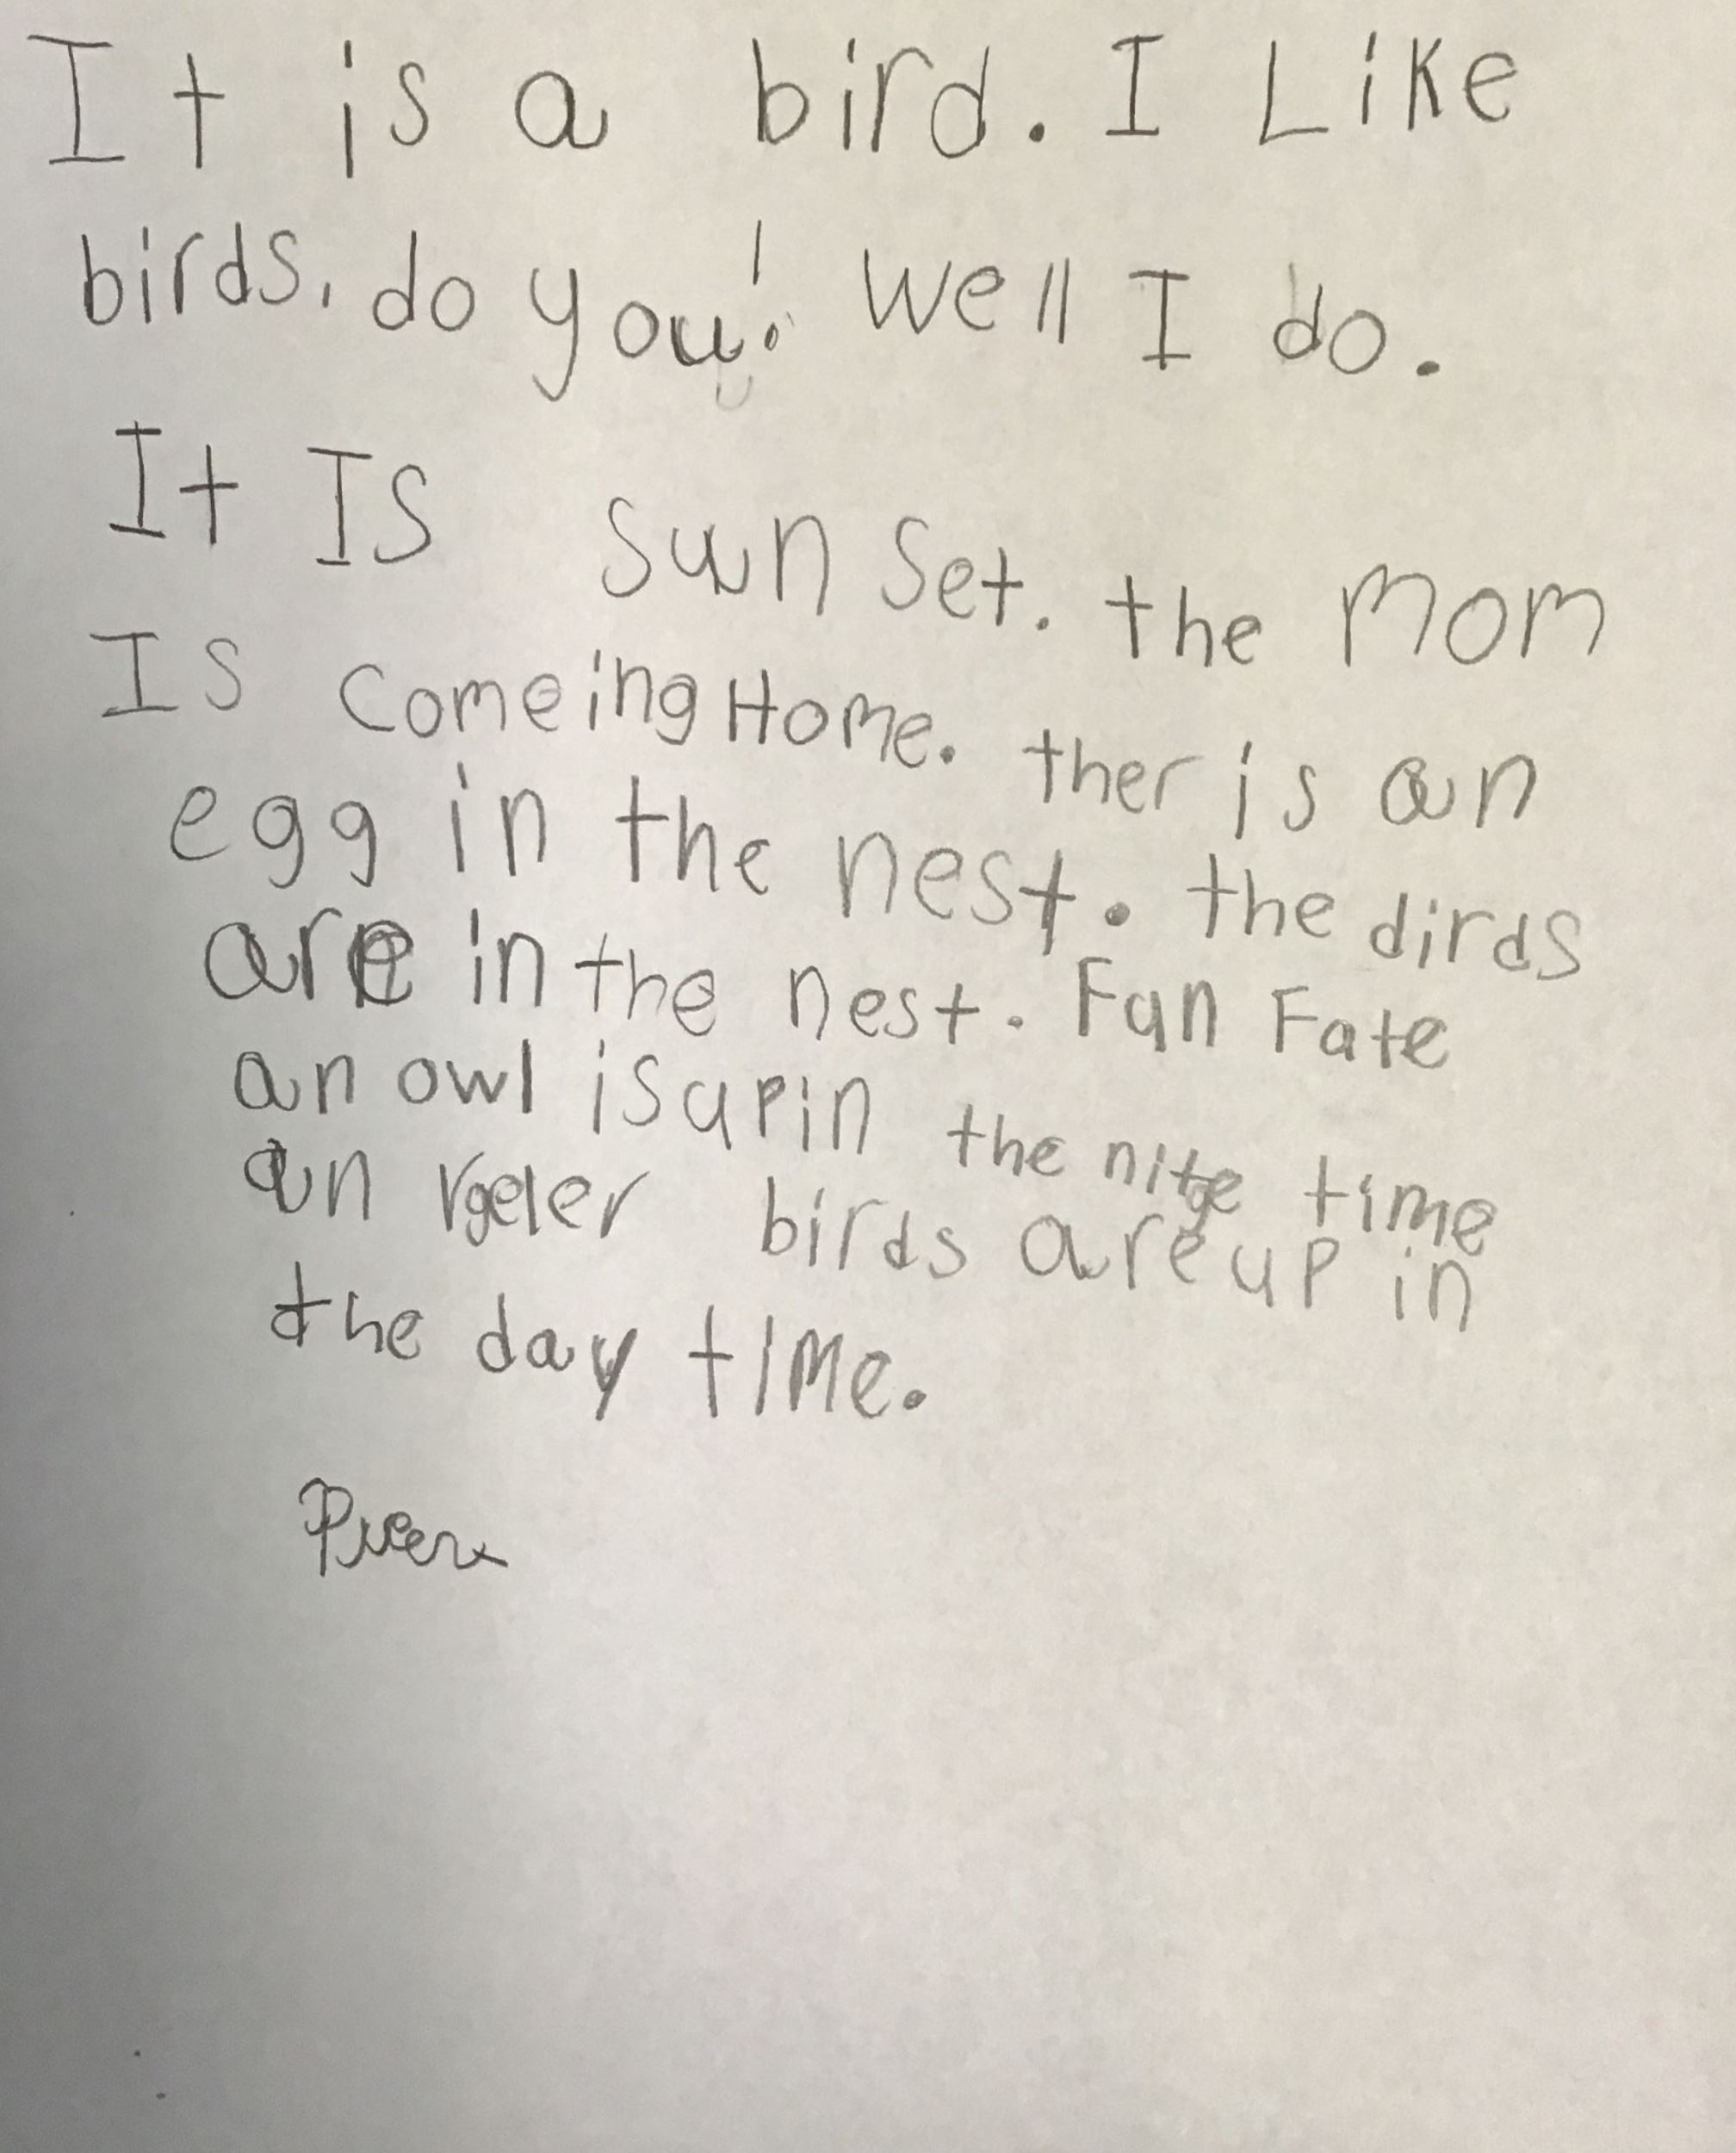 It is a bird. I Like
birds. do you! well I do.
It Is sun set. the mom
Is comeing Home. ther is an
egg in the nest. the dirds
are in the nest. Fun Fate
an owl is up in the nite time
an rgeler birds are up in
the day time.